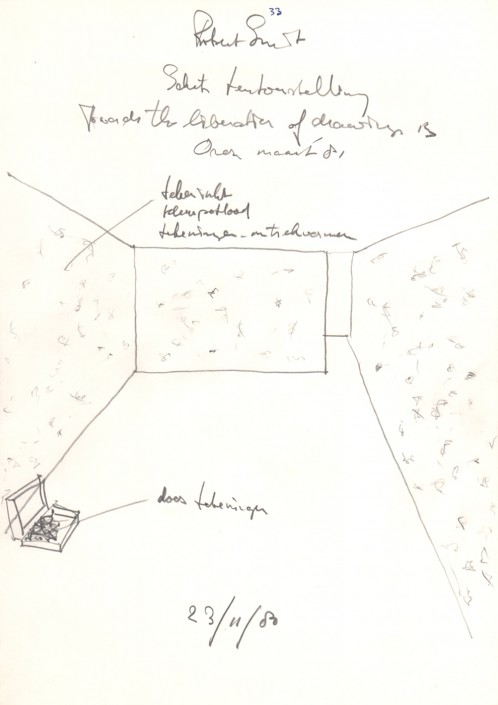 33
Robert Smit
Schets tentoonstelling
Towards the liberation of drawings is
maart 81
tekeninkt
kleurpotlood
tekeningen
doos tekeningen
23/11/80